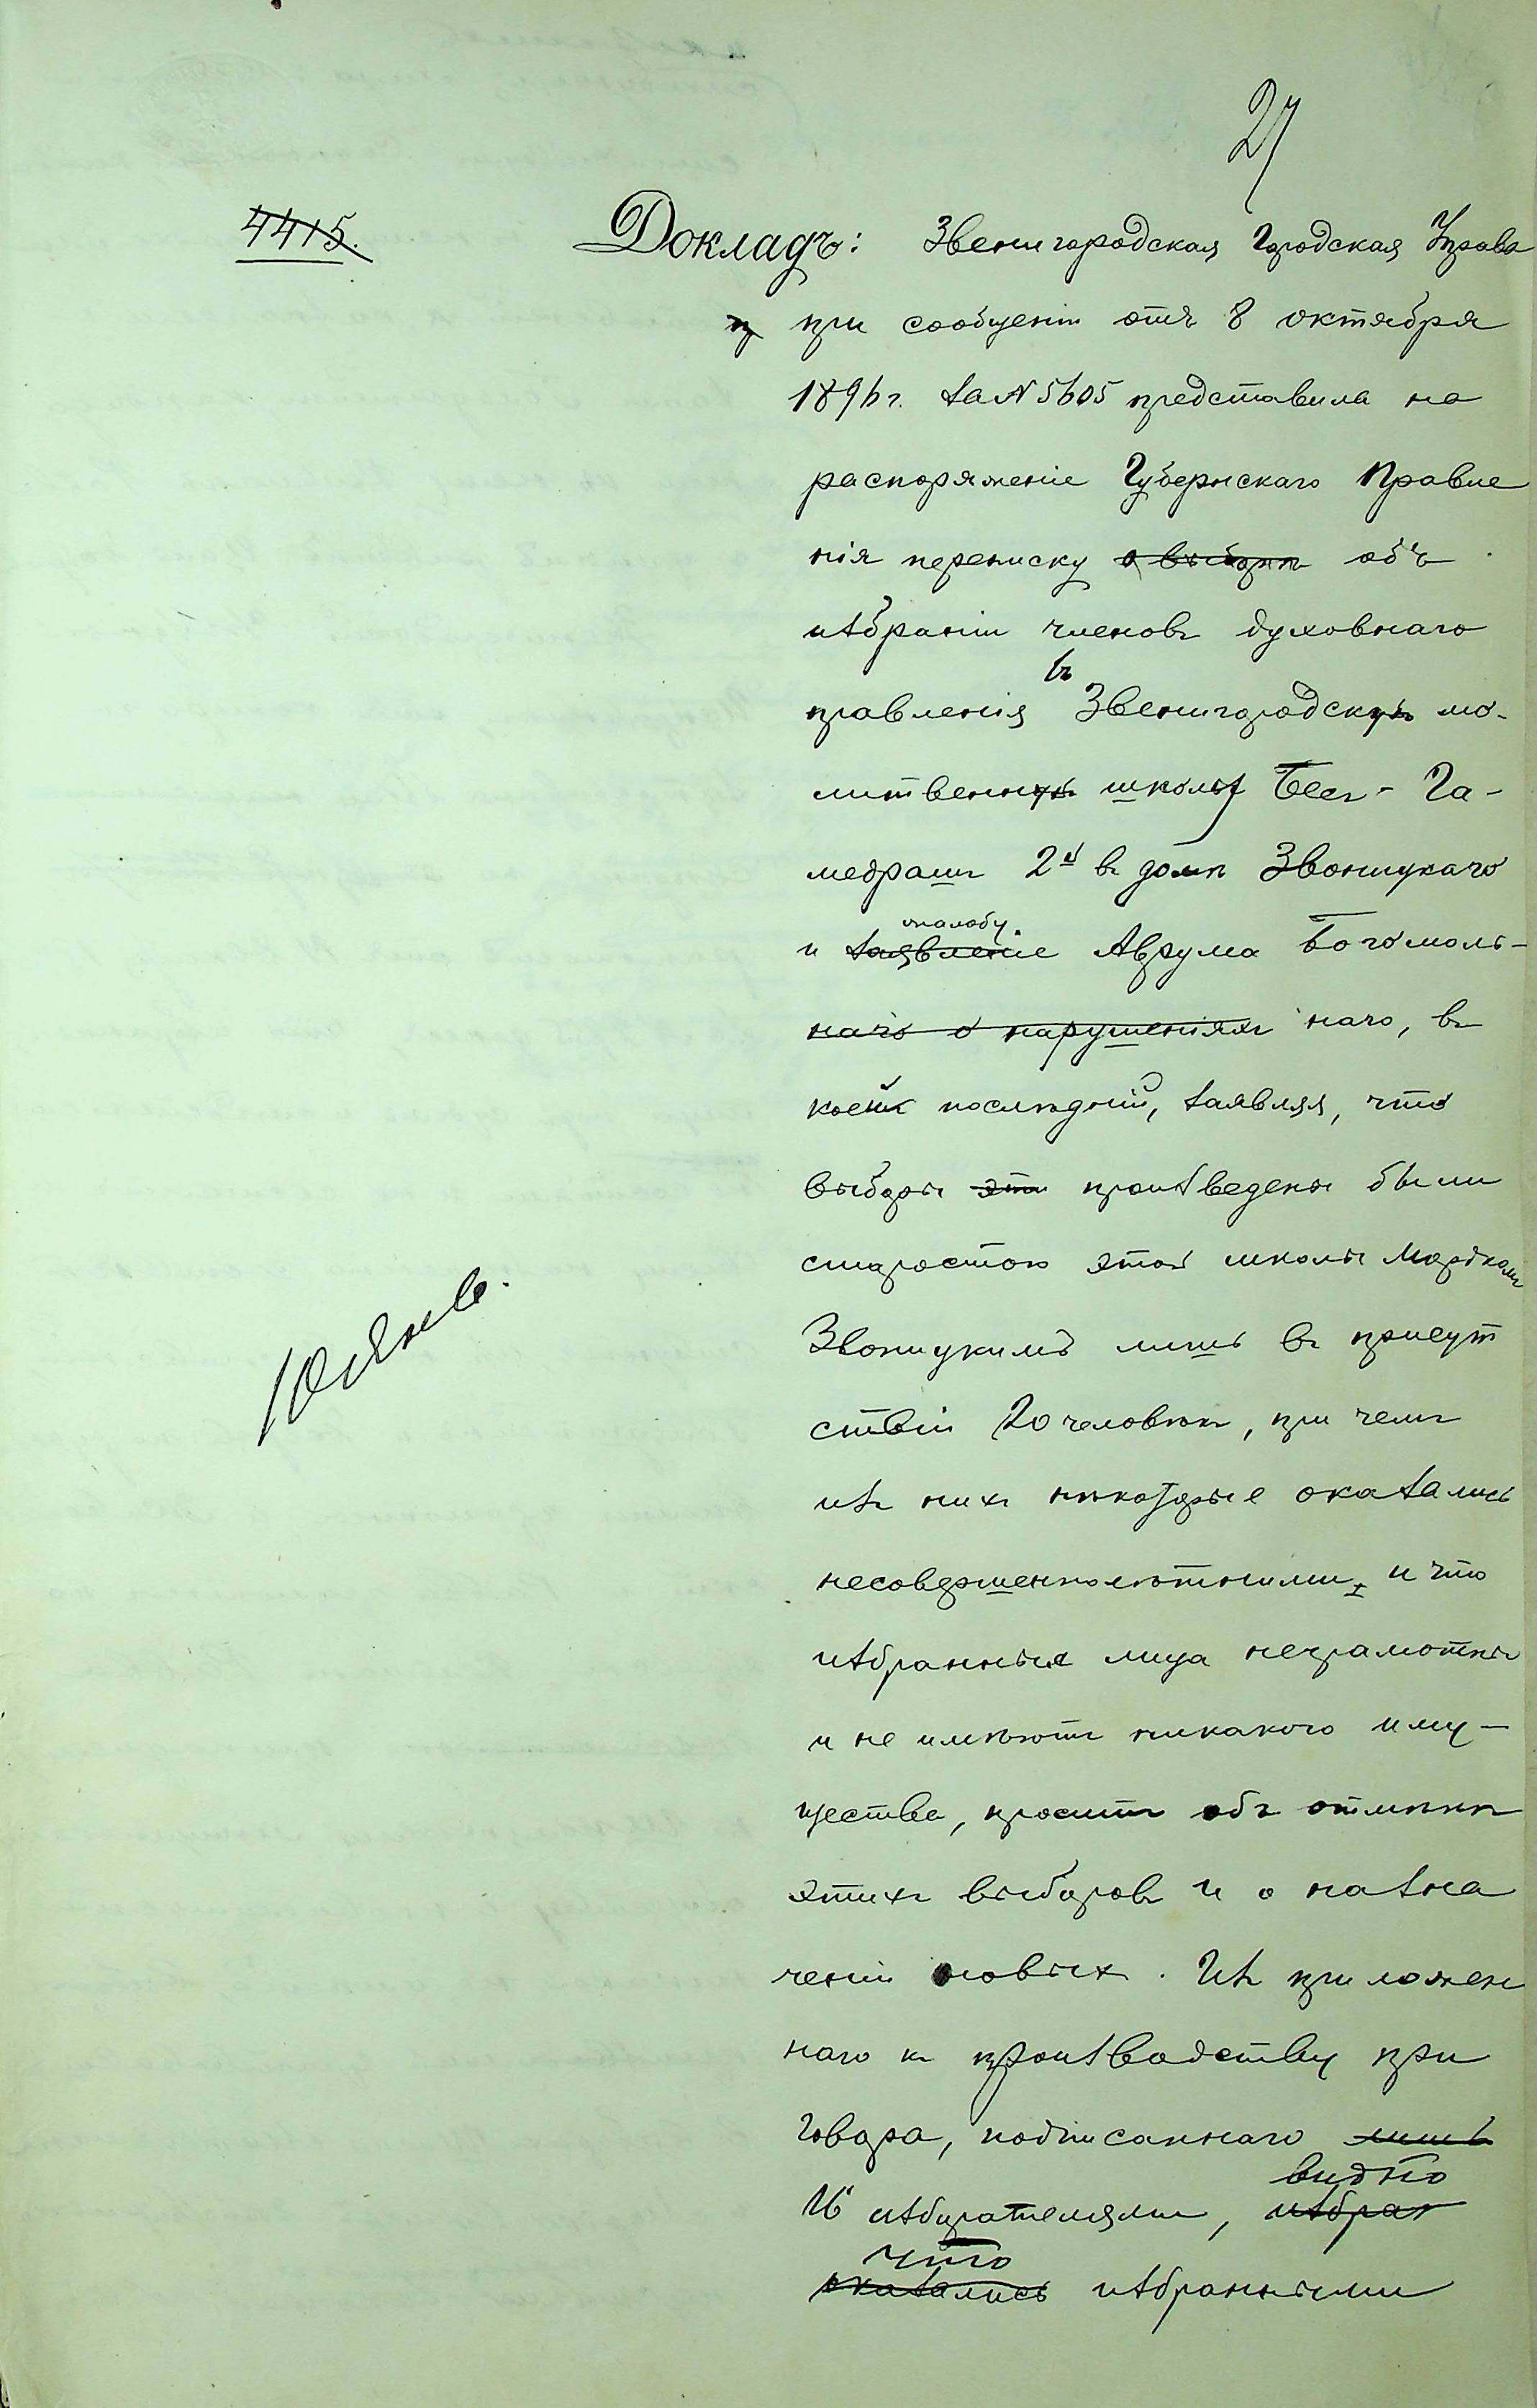 27
4415.
Докладъ: Звенигородская Городская Управа
при сообщеніи отъ 8 октября
1896 г. за № 5605 представила на
распоряженіе Губернскаго Правле
нія переписку о выборѣ объ
избраніи членовъ духовнаго
въ
правленія Звенигородскую мо-
литвенную школу Бесъ-Га-
медрашъ 2й въ домѣ Звоницкаго
жалобу
и заявленіе Аврума Богомоль-
наго о нарушеніяхъ наго, въ
коей послѣдній, заявляя, что
выборы эти произведены были
старостою этой школы Мордкомъ
Звоницкимъ лишь въ присут
ствіи 20 человѣкъ, при чемъ
изъ нихъ нѣкоторые оказались
несовершеннолѣтними, и что
избранные лица неграмотны
и не имѣютъ никакого иму-
щества, проситъ объ отмѣнѣ
этихъ выборовъ и о назна
ченіи новыхъ. Изъ приложен
10 Янв.
наго къ производству при
говора, подписаннаго лишь
видно
16 избирателями, избран
что
оказались избранными